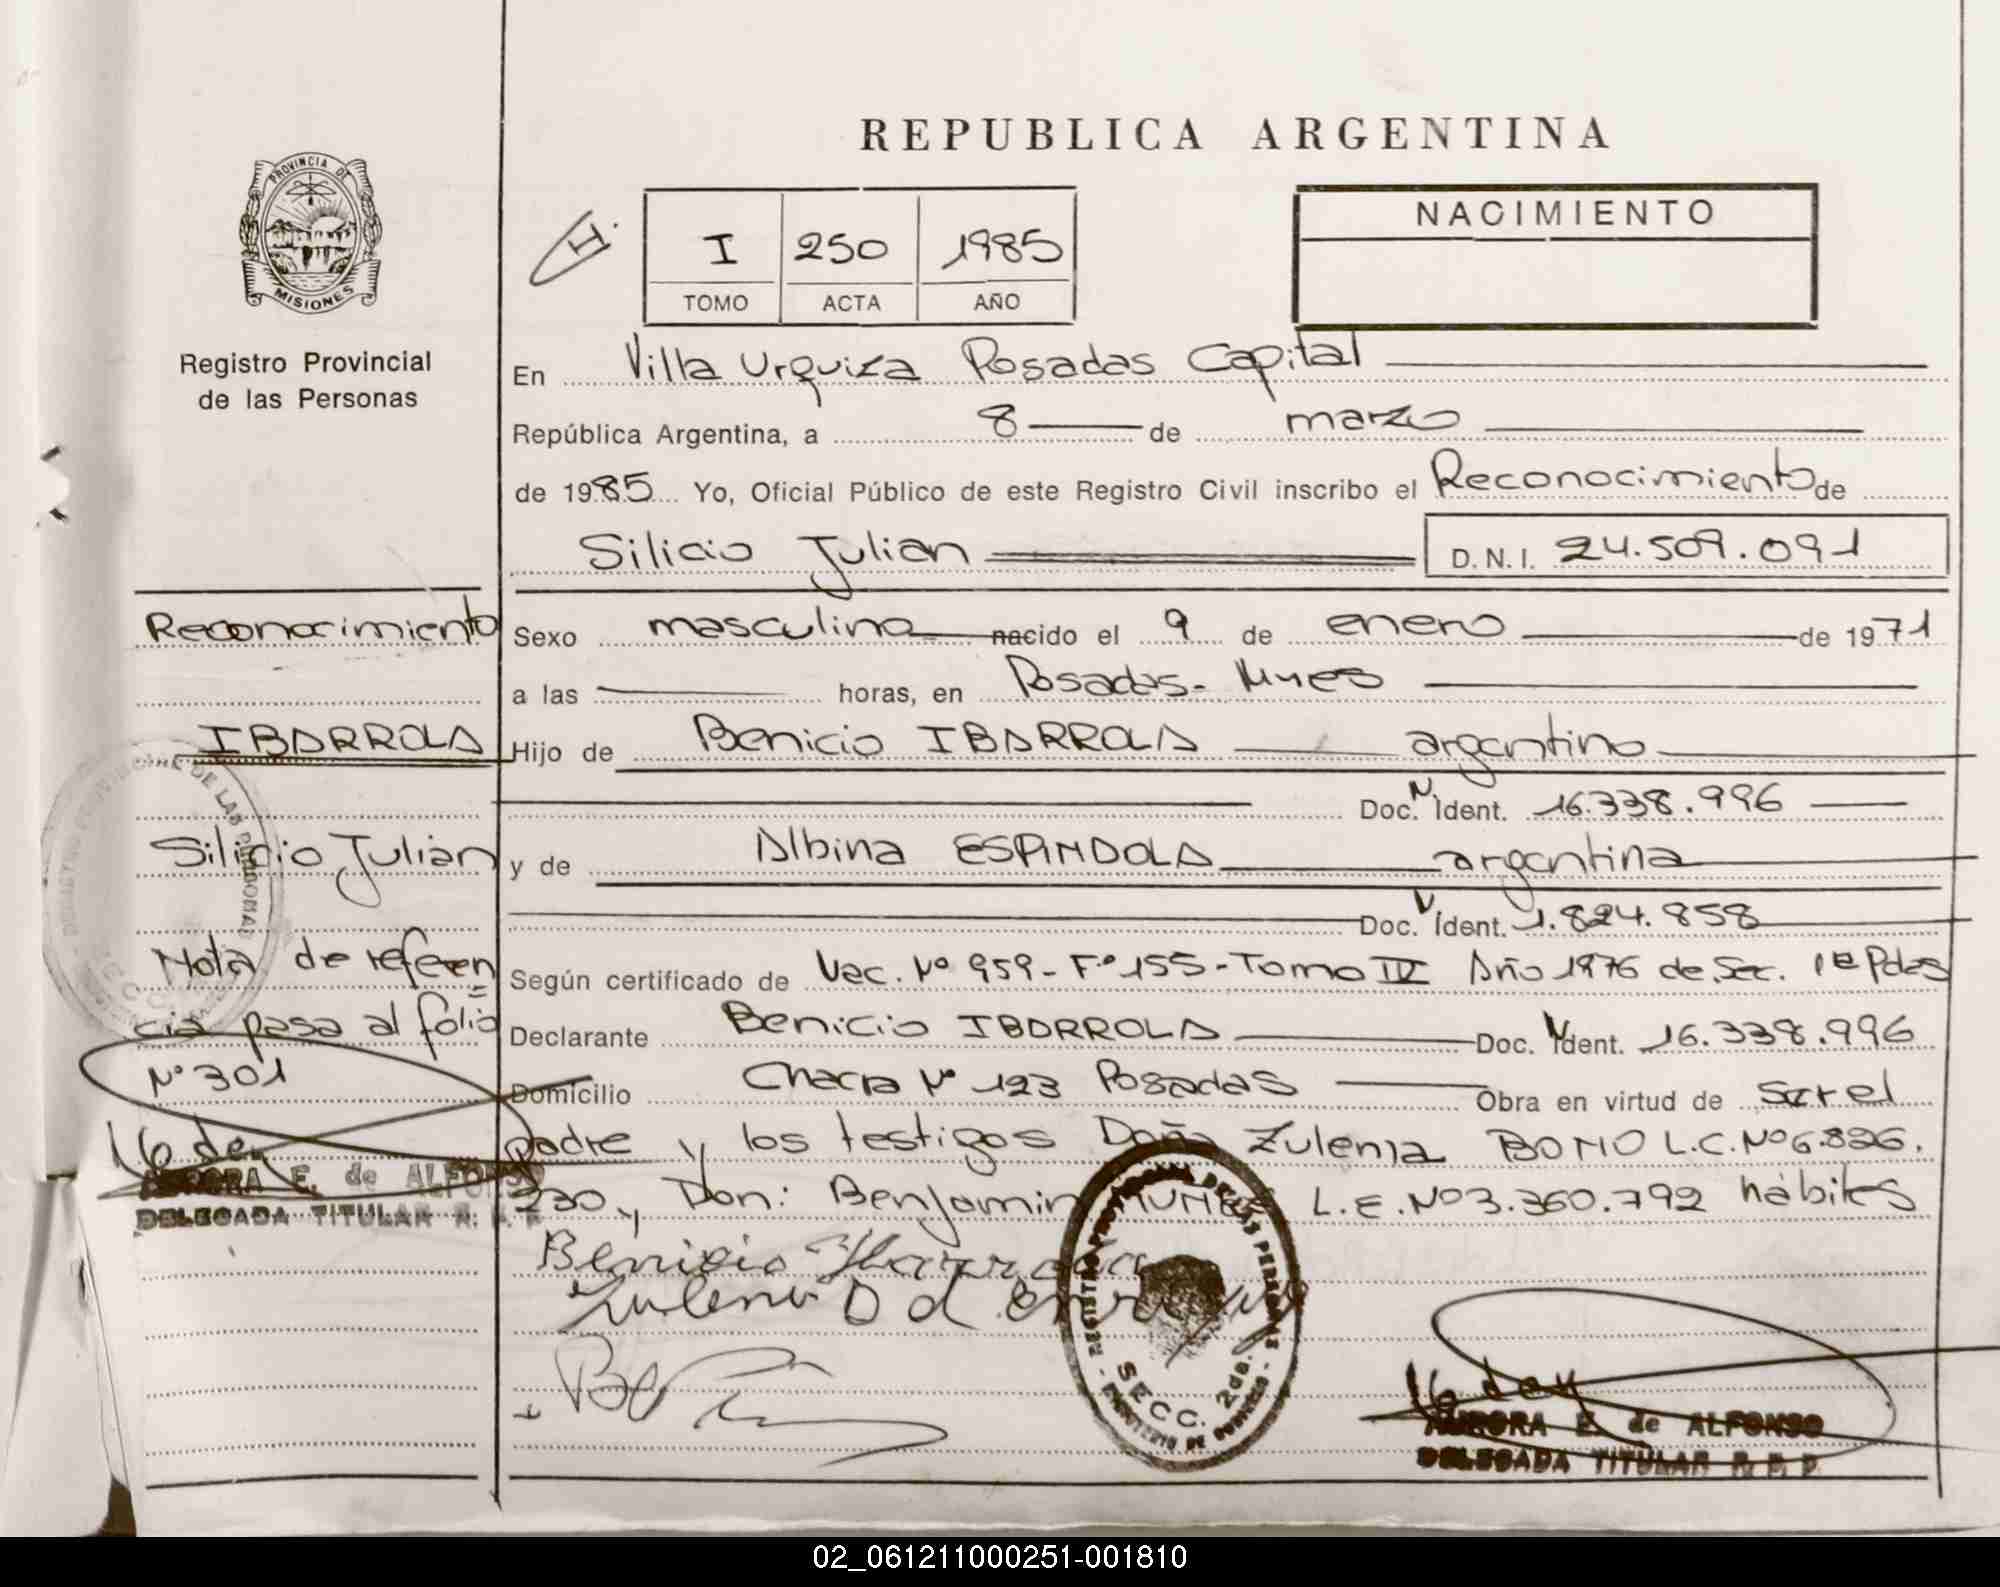 REPUBLICA ARGENTINA
PROVINCIA DE
MISIONES
Registro Provincial
de las Personas
H.
I 250 1985
TOMO ACTA AÑO
NACIMIENTO
En Villa Urquiza Posadas Capital
República Argentina, a 8 de marzo
de 1985 Yo, Oficial Público de este Registro Civil inscribo el Reconocimiento de
Silicio Julian D.N.I. 24.509.091
Reconocimiento
IBARROLA
Silicio Julian
Nota de referen
cia pasa al folio
Nº 301
AURORA E. de ALFONSO
DELEGADA TITULAR R. P. P.
Sexo masculino nacido el 9 de enero de 1971
a las horas, en Posadas- Mnes
Hijo de Benicio IBARROLA argentino
Doc. N. Ident. 16.338.996
y de Albina ESPINDOLA argentina
Doc. Ident. 1.824.858
Según certificado de Vac. Nº 959- Fº 155- Tomo IV Año 1976 de Sec. 1ª Pdas
Declarante Benicio IBARROLA Doc. N Ident. 16.338.996
Domicilio Chacra Nº 123 Posadas Obra en virtud de ser el
padre y los testigos Doña Zulema BONO L.C. Nº 6.826.
230 y Don: Benjamin L.E. Nº 3.360.792 hábiles
Benicio Ibarrola
Zulema
SECC. 2da.
AURORA E. de ALFONSO
DELEGADA TITULAR R. P. P.
02_061211000251-001810